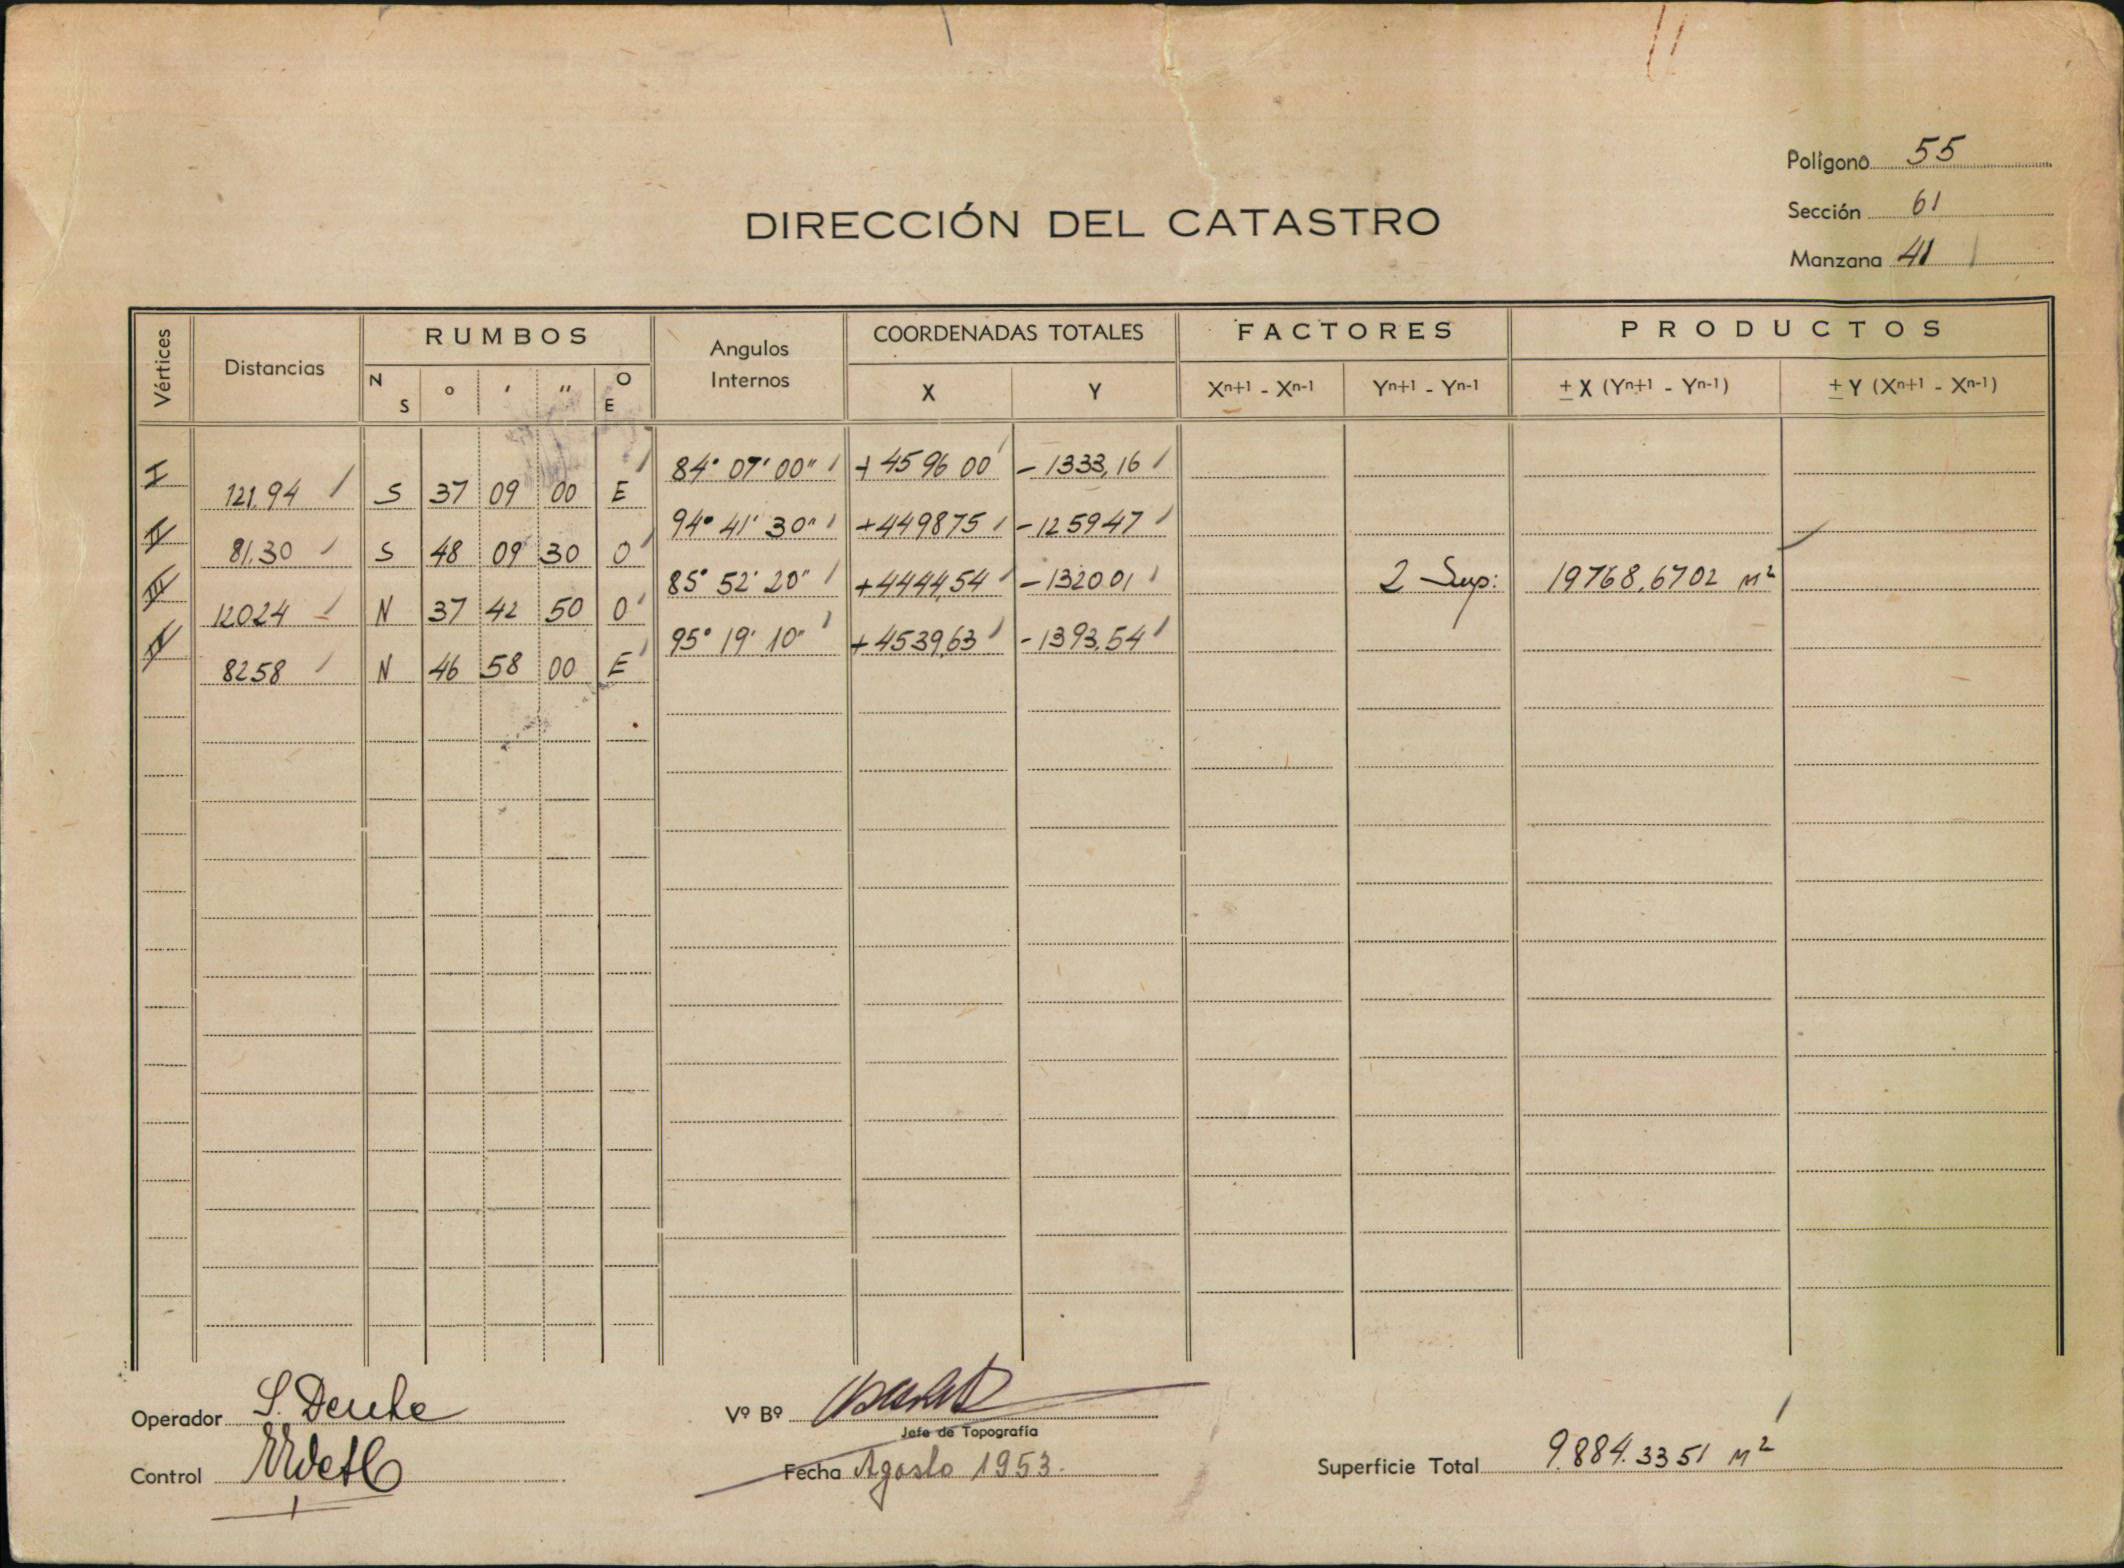 Polígono 55
DIRECCIÓN DEL CATASTRO
Sección 61
Manzana 41
Vértices Distancias RUMBOS Angulos Internos COORDENADAS TOTALES FACTORES PRODUCTOS
N S ° ' " O E X Y Xn+1 - Xn-1 Yn+1 - Yn-1 ± X (Yn+1 - Yn-1) ± Y (Xn+1 - Xn-1)
I 84° 07' 00" + 4596 00 - 1333,16
121.94 S 37 09 00 E
II 94° 41' 30" + 4498 75 - 1259 47
81.30 S 48 09 30 O
III 85° 52' 20" + 4444,54 - 1320 01 2 Sup: 19768,6702 m²
120 24 N 37 42 50 O
IV 95° 19' 10" + 4539,63 - 1393,54
82 58 N 46 58 00 E
Operador
Vº Bº
Jefe de Topografía
Control
Fecha Agosto 1953.
Superficie Total 9.884.3351 m²